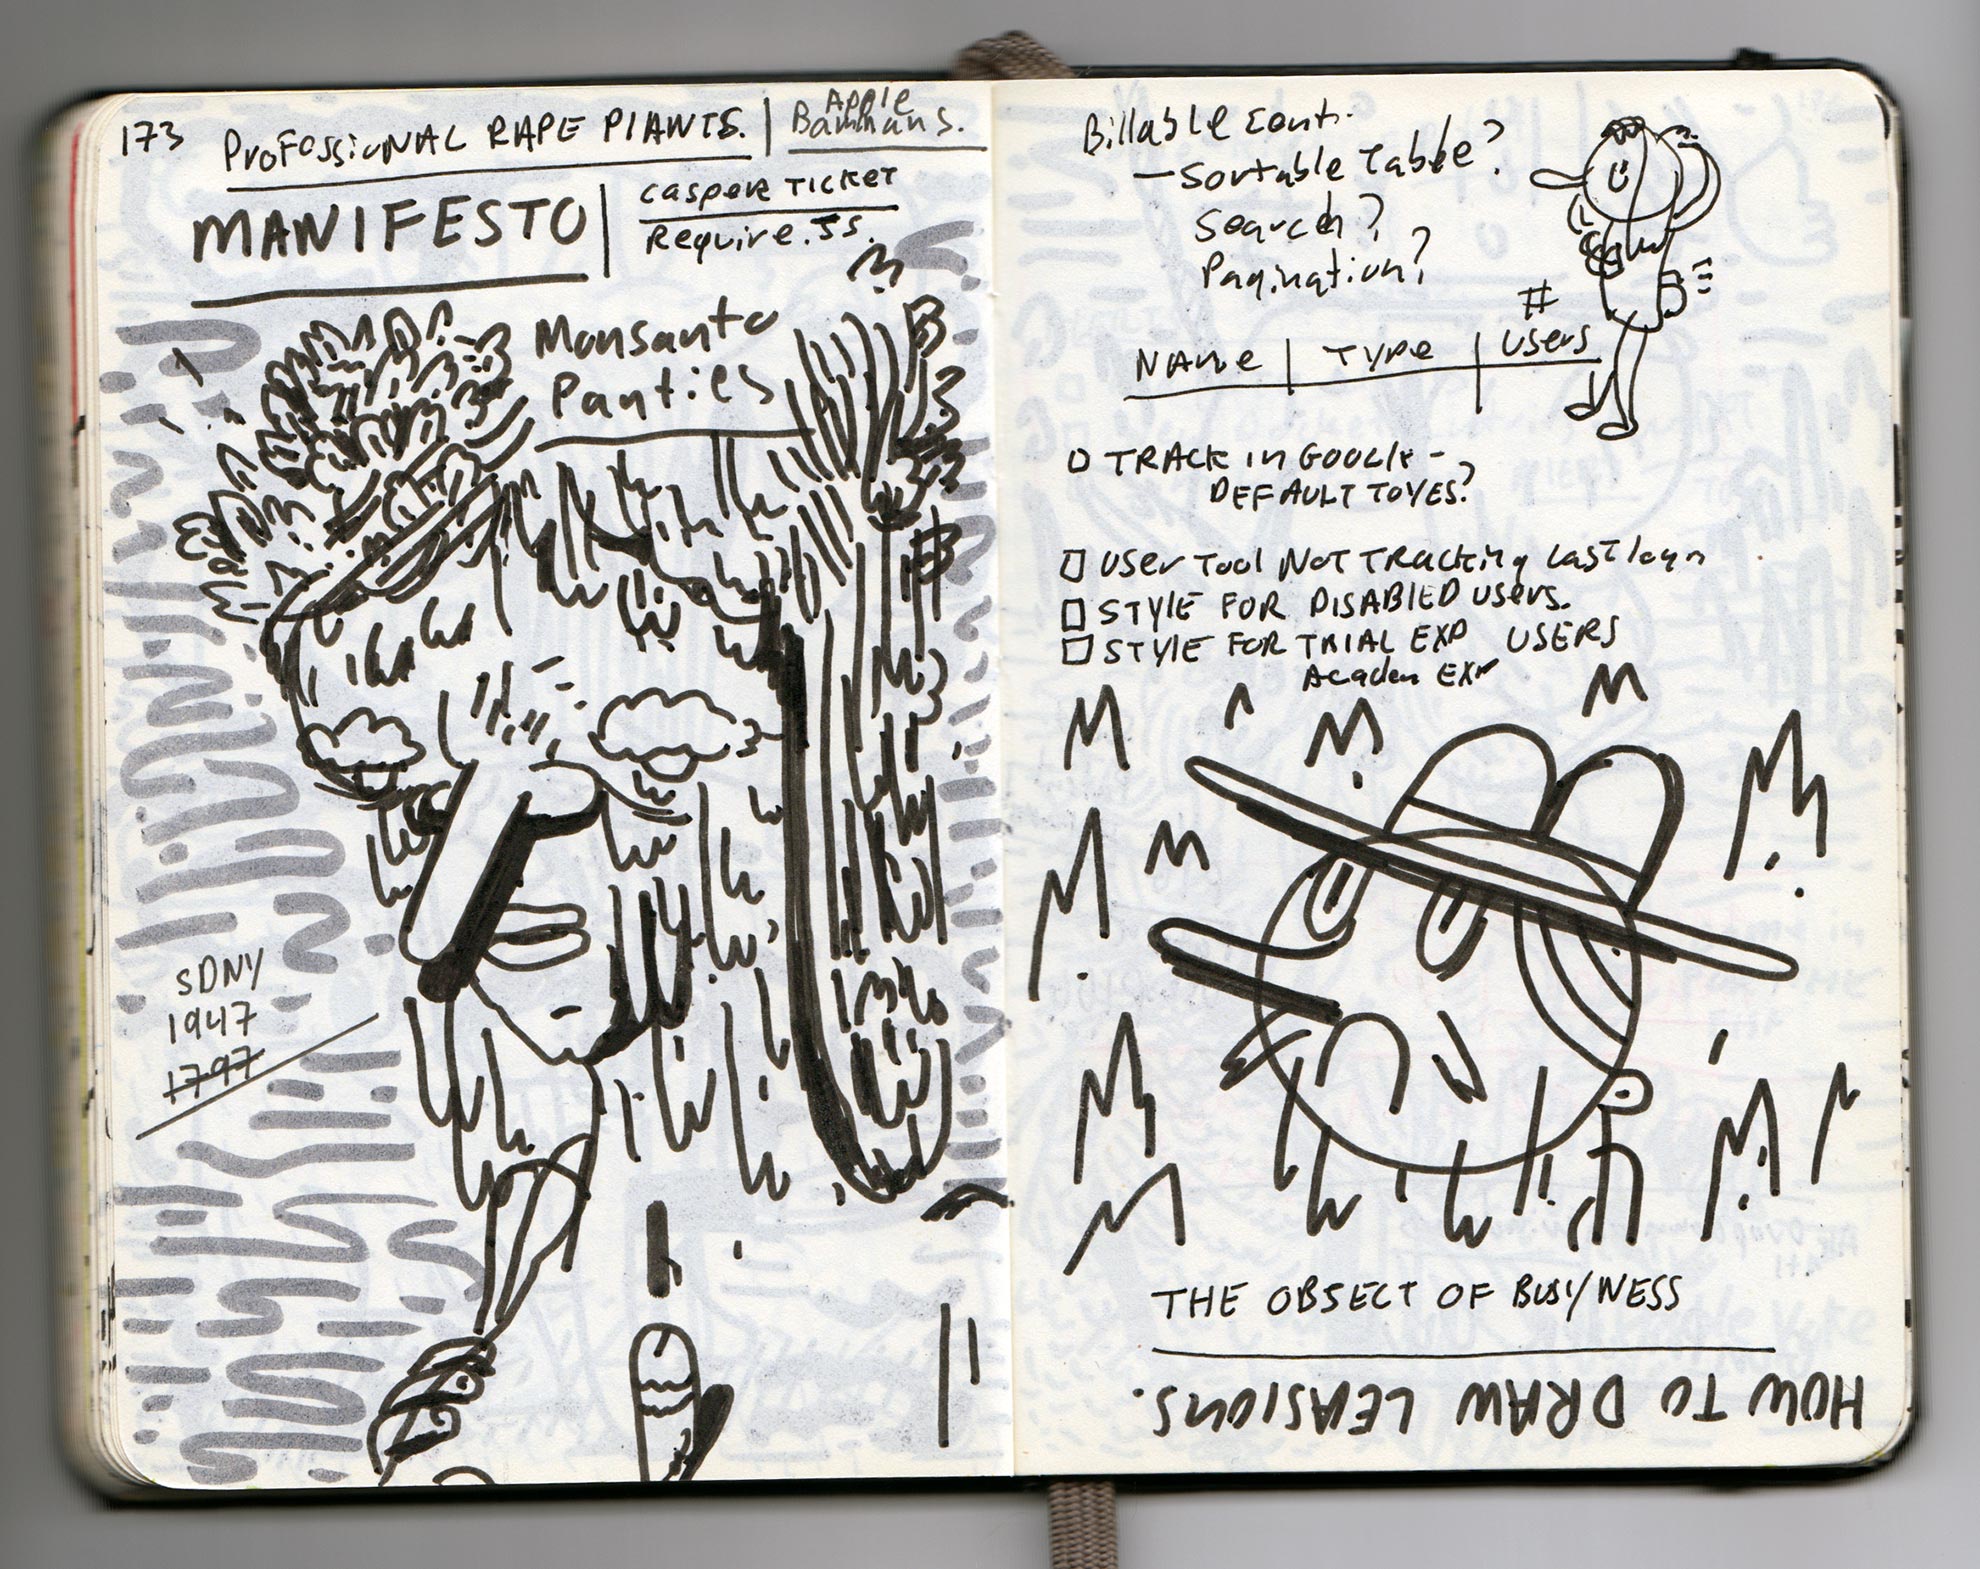 173 ProFossioNAL RAPE PlANTS. | Apple Bammans.
MANIFESTO | casper TICKET
Require.JS.
Monsanto
Panties
SDNY
1947
1797
Billable Cont.
— Sortable Table?
Search?
Pagination?
#
NAme | TYPe | Users
TRACK in GOOGle -
DEFAULT TO YES?
User Tool NOT TRACKing Last login
STYLE FOR DISABLED users.
STYLE FOR TRIAL EXP USERS
Academ EXP
THE OBJECT OF BUSY/NESS
HOW TO DRAW LEASIONS.